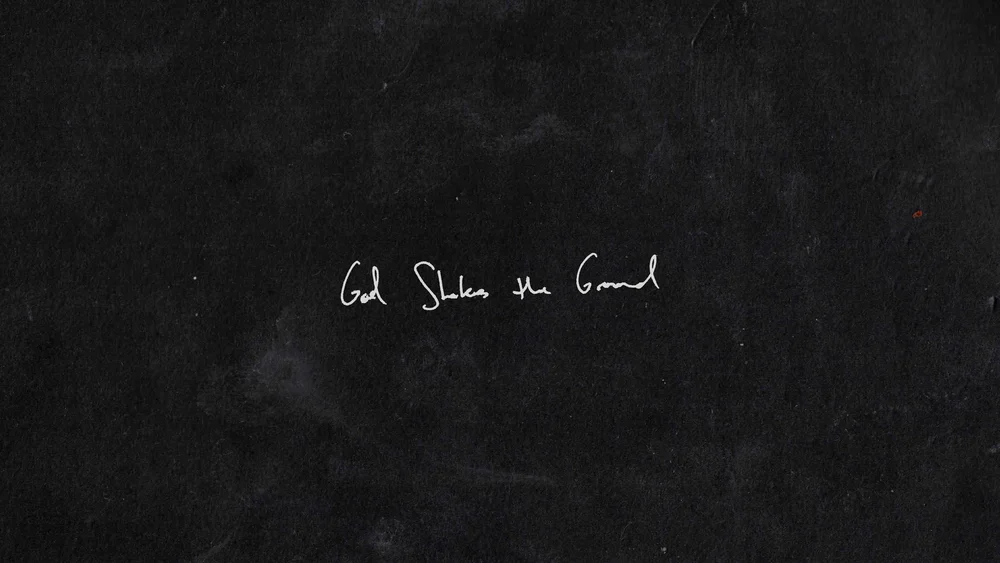 God Shakes the Ground